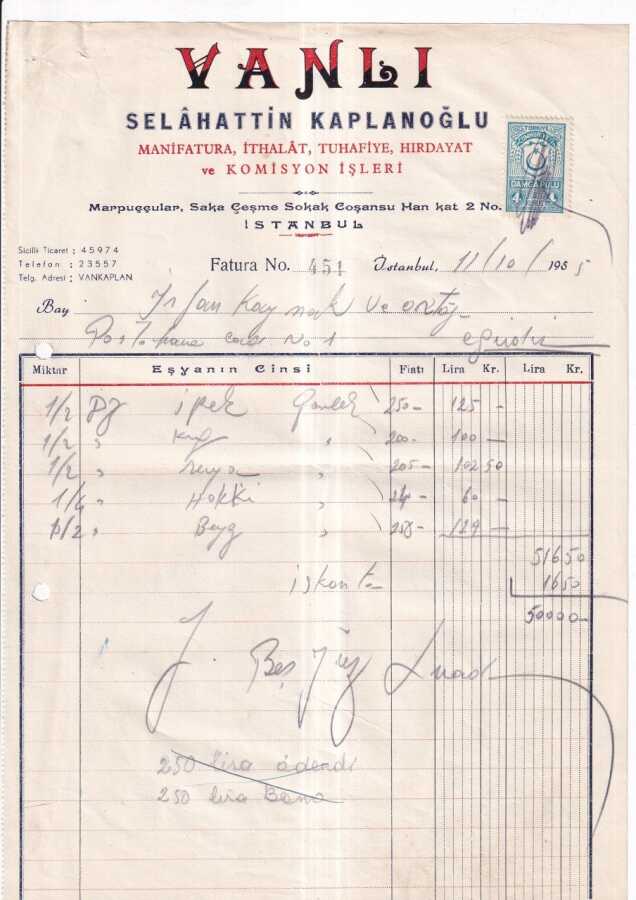 VANLI
SELÂHATTİN KAPLANOĞLU
MANİFATURA, İTHALÂT, TUHAFİYE, HIRDAYAT
ve KOMİSYON İŞLERİ
Marpuççular, Saka Çeşme Sokak Coşansu Han kat 2 No.
İSTANBUL
DAMGA PULU
Sicilli Ticaret : 45974
Telefon : 23557
Telg. Adresi : VANKAPLAN
Fatura No. 451 İstanbul, 11/10/1955
Bay İrfan Kaynak ve ortağ
Postahane cad No 1
Miktar Eşyanın Cinsi Fiatı Lira Kr. Lira Kr.
1/2 ipek 250- 125 -
1/2 " " 200- 100 -
1/2 " " 205- 102 50
1/4 " Hakki " 60 -
1/2 " " 129 -
516 50
iskonto 16 50
500 00-
Beş Yüz Liradır
250 lira ödendi
250 lira Bono